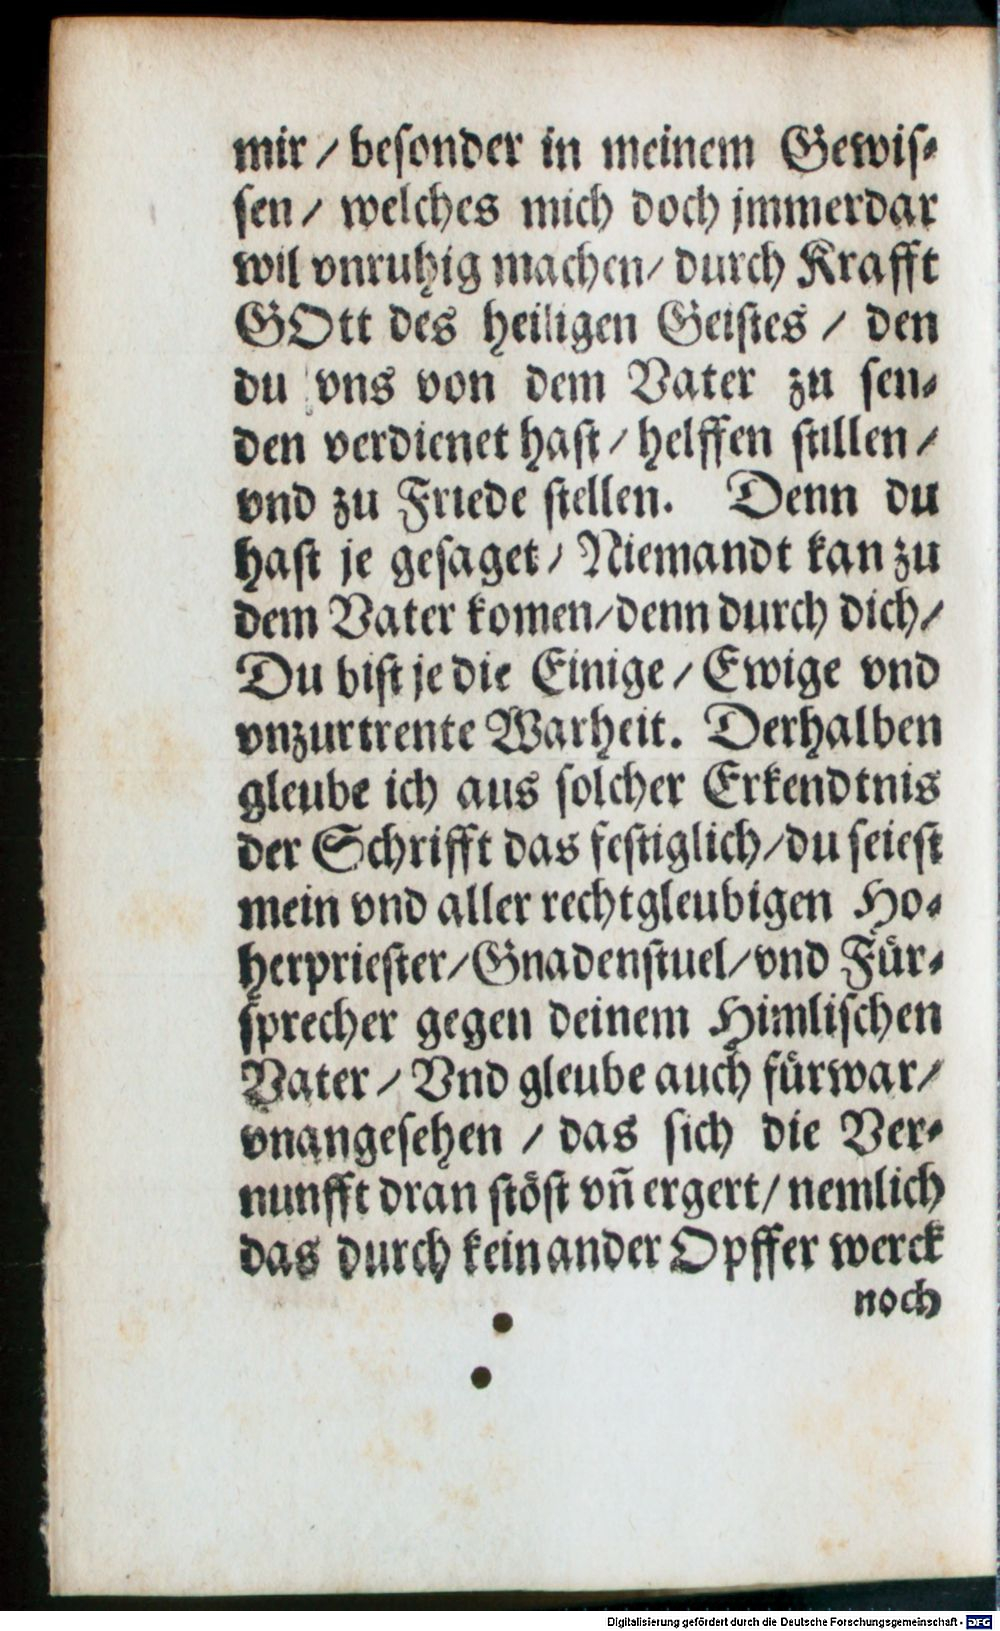 mir / beſonder in meinem Gewiſ⸗
ſen / welches mich doch jmmerdar
wil vnruhig machen / durch Krafft
GOtt des heiligen Geiſtes / den
du vns von dem Vater zu ſen⸗
den verdienet haſt / helffen ſtillen /
vnd zu Friede ſtellen. Denn du
haſt je geſaget / Niemandt kan zu
dem Vater komen / denn durch dich /
Du biſt je die Einige / Ewige vnd
vnzurtrente Warheit. Derhalben
gleube ich aus ſolcher Erkendtnis
der Schrifft das feſtiglich / du ſeieſt
mein vnd aller rechtgleubigen Ho⸗
herprieſter / Gnadenſtuel / vnd Fuͤr⸗
ſprecher gegen deinem Himliſchen
Vater / Vnd gleube auch fuͤrwar /
vnangeſehen / das ſich die Ver⸗
nunfft dran ſtoͤſt vn̄ ergert / nemlich
das durch kein ander Opffer werck
noch
Digitalisierung gefördert durch die Deutsche Forschungsgemeinschaft - DFG